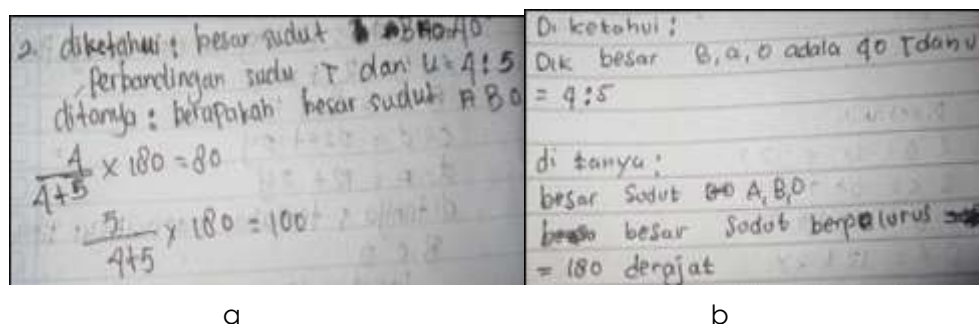 2. diketahui : besar sudut BAO 40
Perbandingan sudu T dan U = 4 : 5
ditanya : berapakah besar sudut ABO
4/4+5 × 180 = 80
5/4+5 × 180 = 100
a
Di ketahui :
Dik besar B, a, O adala 40 T dan U
= 4 : 5
di tanya :
besar Sudut A, B, O
besar Sudut berpelurus
= 180 derajat
b